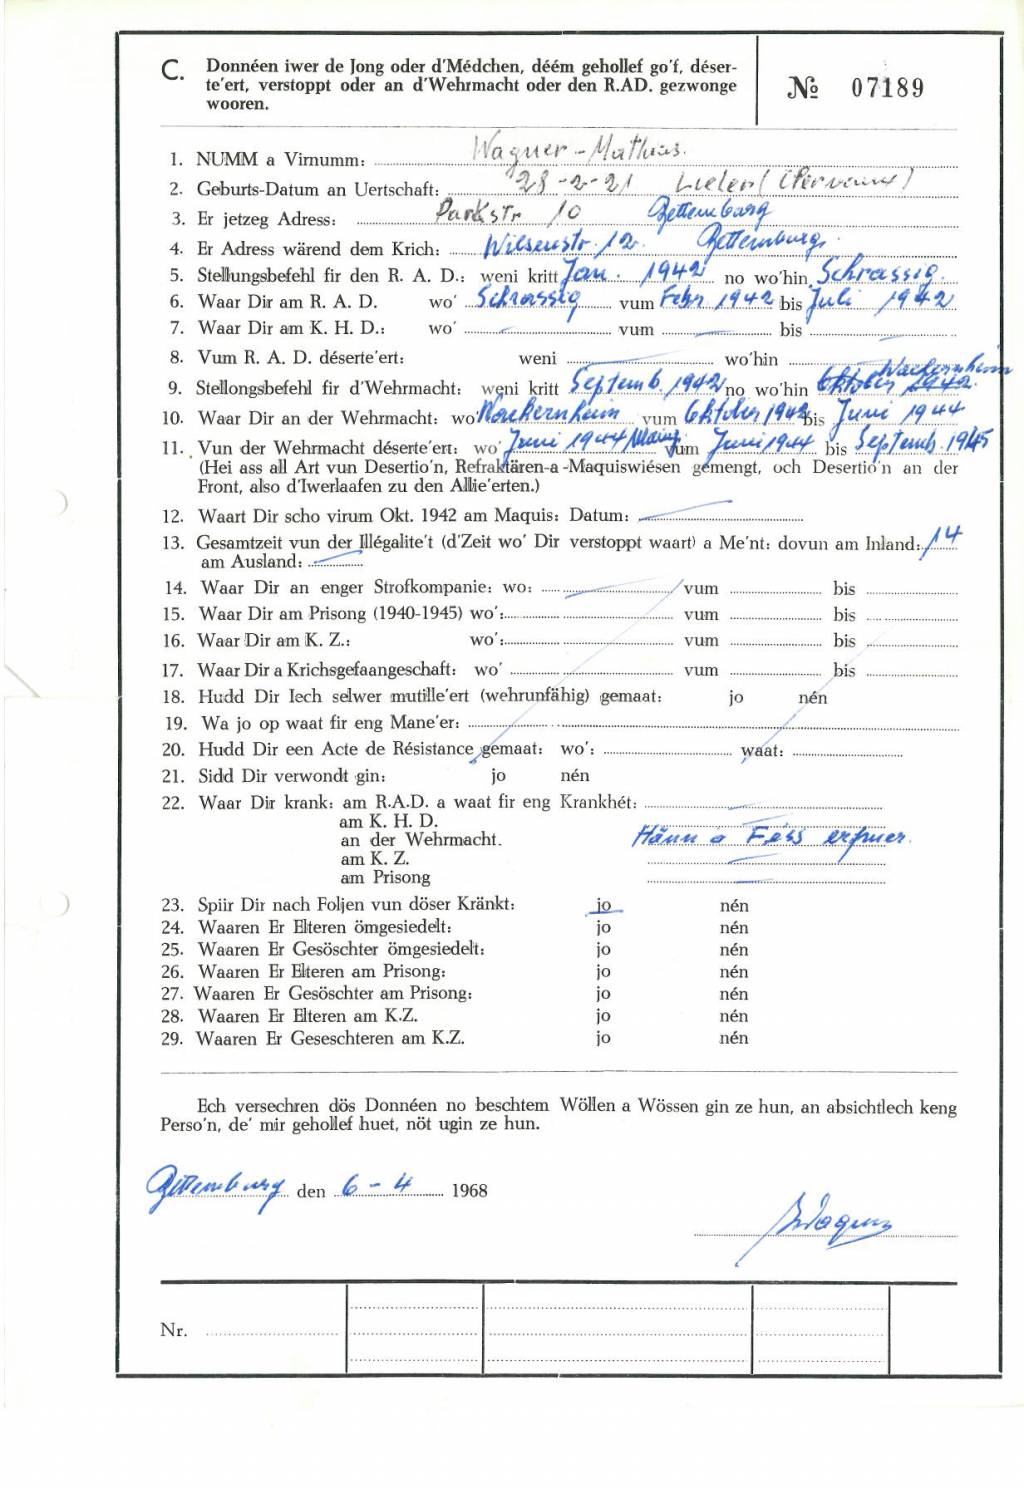 C. Donnéen iwer de Jong oder d'Médchen, déém gehollef go'f, déser-
te'ert, verstoppt oder an d'Wehrmacht oder den R.AD. gezwonge
wooren.
№ 07189
1. NUMM a Virnumm: Wagner - Mathias.
2. Geburts-Datum an Uertschaft: 28-2-21 Lieler (Clervaux)
3. Er jetzeg Adress: Parkstr 10 Bettemburg
4. Er Adress wärend dem Krich: Wilsenstr. 12. Bettemburg.
5. Stellungsbefehl fir den R. A. D.: weni kritt Jan. 1942 no wo'hin Schrassig.
6. Waar Dir am R. A. D. wo' Schrassig vum Febr 1942 bis Juli 1942
7. Waar Dir am K. H. D.: wo' — vum — bis —
8. Vum R. A. D. déserte'ert: weni — wo'hin —
9. Stellongsbefehl fir d'Wehrmacht: weni kritt Septemb. 1942 no wo'hin Oktober 1942. Wackernheim
10. Waar Dir an der Wehrmacht: wo' Wackernheim vum Oktober 1942 bis Juni 1944
11. Vun der Wehrmacht déserte'ert: wo' Juni 1944 Mainz vum Juni 1944 bis Septemb. 1945
(Hei ass all Art vun Desertio'n, Refraktären-a-Maquiswiésen gemengt, och Desertio'n an der
Front, also d'Iwerlaafen zu den Allie'erten.)
12. Waart Dir scho virum Okt. 1942 am Maquis: Datum: —
13. Gesamtzeit vun der Illégalite't (d'Zeit wo' Dir verstoppt waart) a Me'nt: dovun am Inland: 14
am Ausland: —
14. Waar Dir an enger Strofkompanie: wo: — vum bis
15. Waar Dir am Prisong (1940-1945) wo': vum bis
16. Waar Dir am K. Z.: wo': vum bis
17. Waar Dir a Krichsgefaangeschaft: wo' vum bis
18. Hudd Dir Iech selwer mutille'ert (wehrunfähig) gemaat: jo nén
19. Wa jo op waat fir eng Mane'er:
20. Hudd Dir een Acte de Résistance gemaat: wo': waat:
21. Sidd Dir verwondt gin: jo nén
22. Waar Dir krank: am R.A.D. a waat fir eng Krankhét: —
am K. H. D. —
an der Wehrmacht. Hänn a Féss erfruer.
am K. Z. —
am Prisong —
23. Spiir Dir nach Foljen vun döser Kränkt: jo nén
24. Waaren Er Elteren ömgesiedelt: jo nén
25. Waaren Er Gesöschter ömgesiedelt: jo nén
26. Waaren Er Elteren am Prisong: jo nén
27. Waaren Er Gesöschter am Prisong: jo nén
28. Waaren Er Elteren am K.Z. jo nén
29. Waaren Er Geseschteren am K.Z. jo nén
Ech versechren dös Donnéen no beschtem Wöllen a Wössen gin ze hun, an absichtlech keng
Perso'n, de' mir gehollef huet, nöt ugin ze hun.
Bettemburg den 6-4 1968
Wagner
Nr.